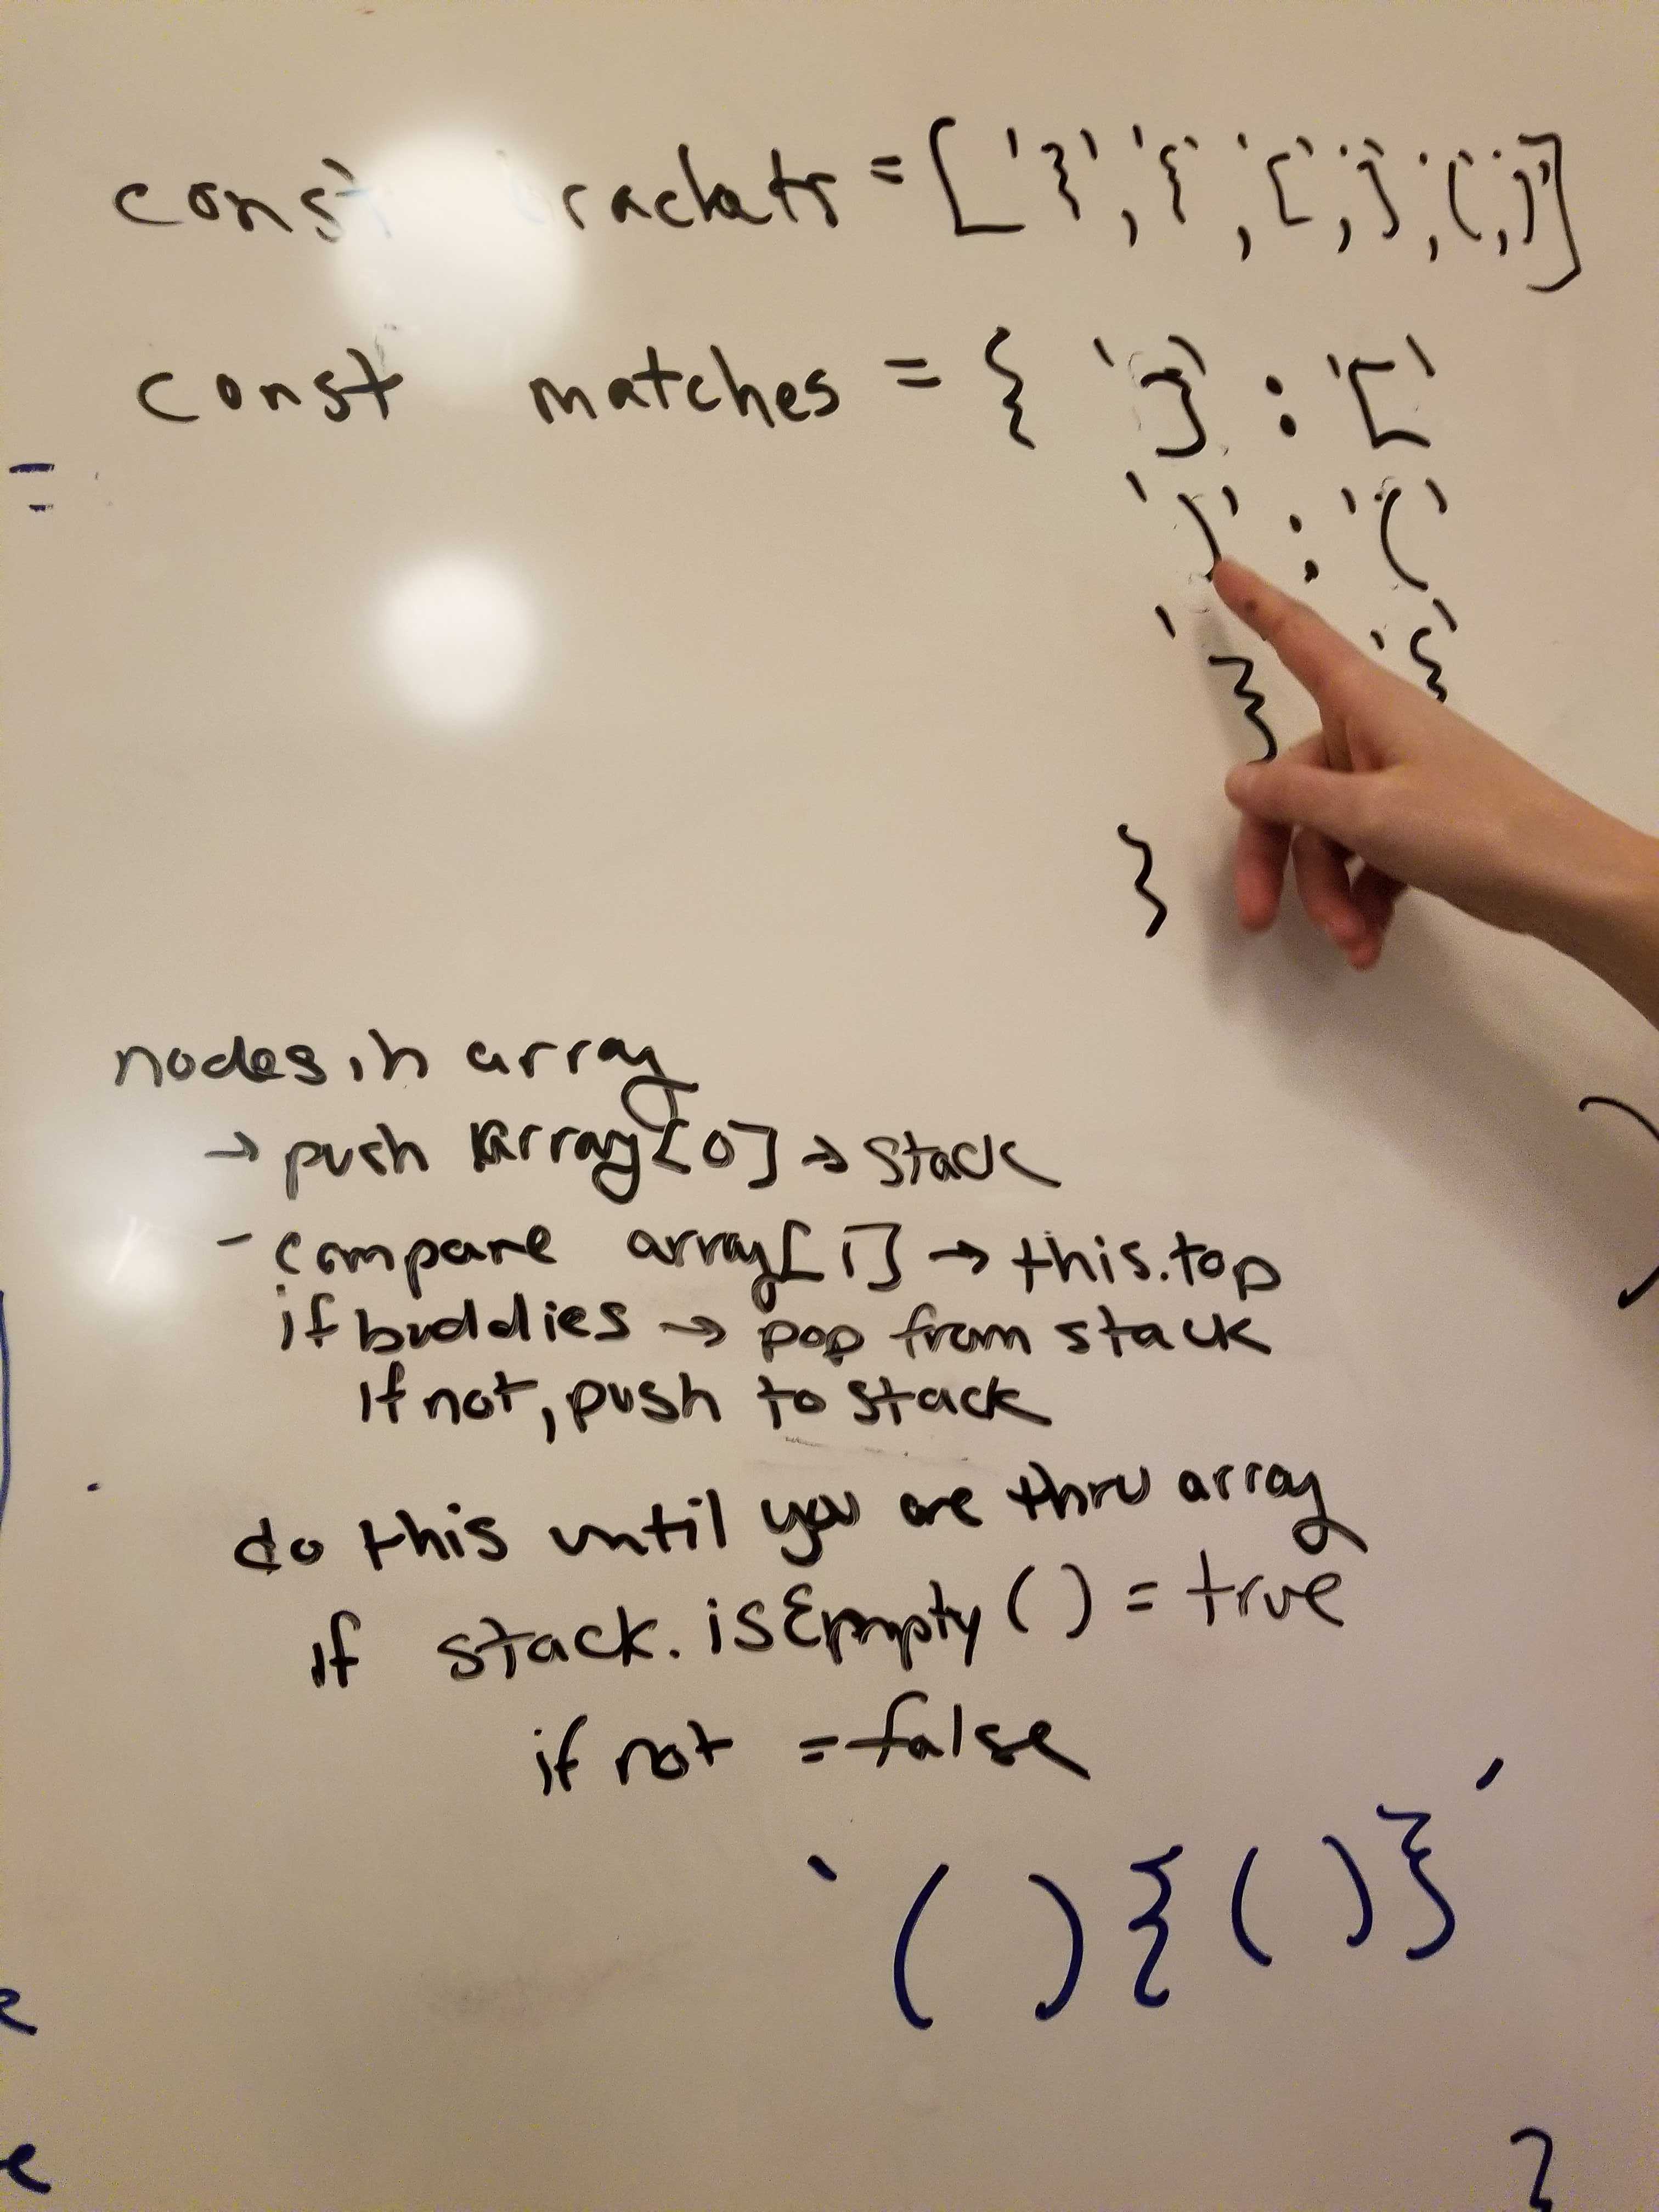 const brackets = ['}','{','[',']','(',')']
const matches = { ']' : '['
')' : '('
'} '{'
}
nodes in array
→ push array[0] → stack
- compare array[i] → this.top
if buddies → pop from stack
if not, push to stack
do this until you are thru array
if stack.isEmpty() = true
if not = false
'(){()}'